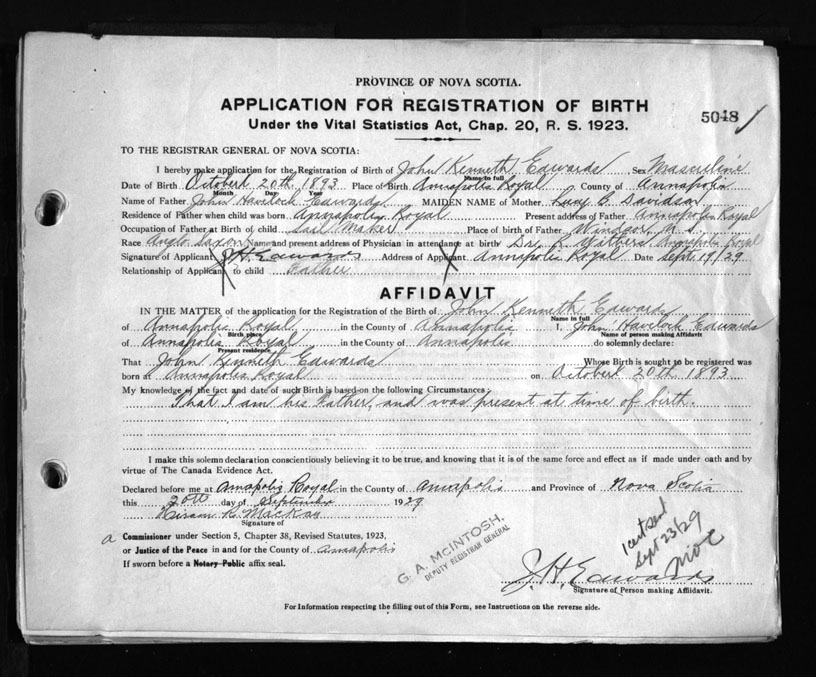 PROVINCE OF NOVA SCOTIA.
APPLICATION FOR REGISTRATION OF BIRTH
5048
Under the Vital Statistics Act, Chap. 20, R. S. 1923.
TO THE REGISTRAR GENERAL OF NOVA SCOTIA:
I hereby make application for the Registration of Birth of John Kenneth Edwards Sex Masculine
Name in full
Date of Birth October 20th 1893 Place of Birth Annapolis Royal County of Annapolis
Month Day Year
Name of Father John Havelock Edwards MAIDEN NAME of Mother Lucy B. Davidson
Residence of Father when child was born Annapolis Royal Present address of Father Annapolis Royal
Occupation of Father at Birth of child Sail Maker Place of birth of Father Windsor N.S.
Race Anglo Saxon Name and present address of Physician in attendance at birth Dr. Annapolis Royal
Signature of Applicant J H Edwards Address of Applicant Annapolis Royal Date Sept. 19/29
Relationship of Applicant to child Father
AFFIDAVIT
IN THE MATTER of the application for Registration of the Birth of John Kenneth Edwards
Name in full
of Annapolis Royal in the County of Annapolis I, John Havelock Edwards
Birth place Name of person making Affidavit
of Annapolis Royal in the County of Annapolis do solemnly declare:
Present residence
That John Kenneth Edwards Whose Birth is sought to be registered was
born at Annapolis Royal on October 20th. 1893
My knowledge of the fact and date of such Birth is based on the following Circumstances:
That I am his Father, and was present at time of birth.
I make this solemn declaration conscientiously believing it to be true, and knowing that it is of the same force and effect as if made under oath and by
virtue of The Canada Evidence Act.
Declared before me at Annapolis Royal in the County of Annapolis and Province of Nova Scotia
this 20th day of September 1929
Hiram R. MacKay
Signature of
a Commissioner under Section 5, Chapter 38, Revised Statutes, 1923,
or Justice of the Peace in and for the County of Annapolis
If sworn before a Notary Public affix seal.
G. A. McINTOSH,
DEPUTY REGISTRAR GENERAL
1 cert sent
Sept 23/29
J. H. Edwards
Signature of Person making Affidavit.
For Information respecting the filling out of this Form, see Instructions on the reverse side.